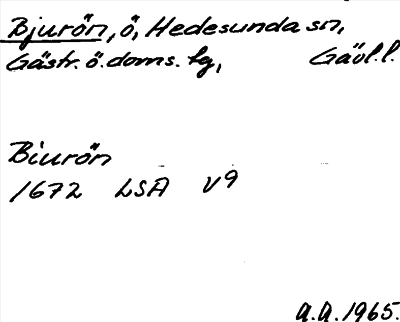 Bjurön, ö, Hedesunda sn,
Gästr. ö. doms. tg, Gävl.l.
Biurön
1672 LSA V9
A.A. 1965.